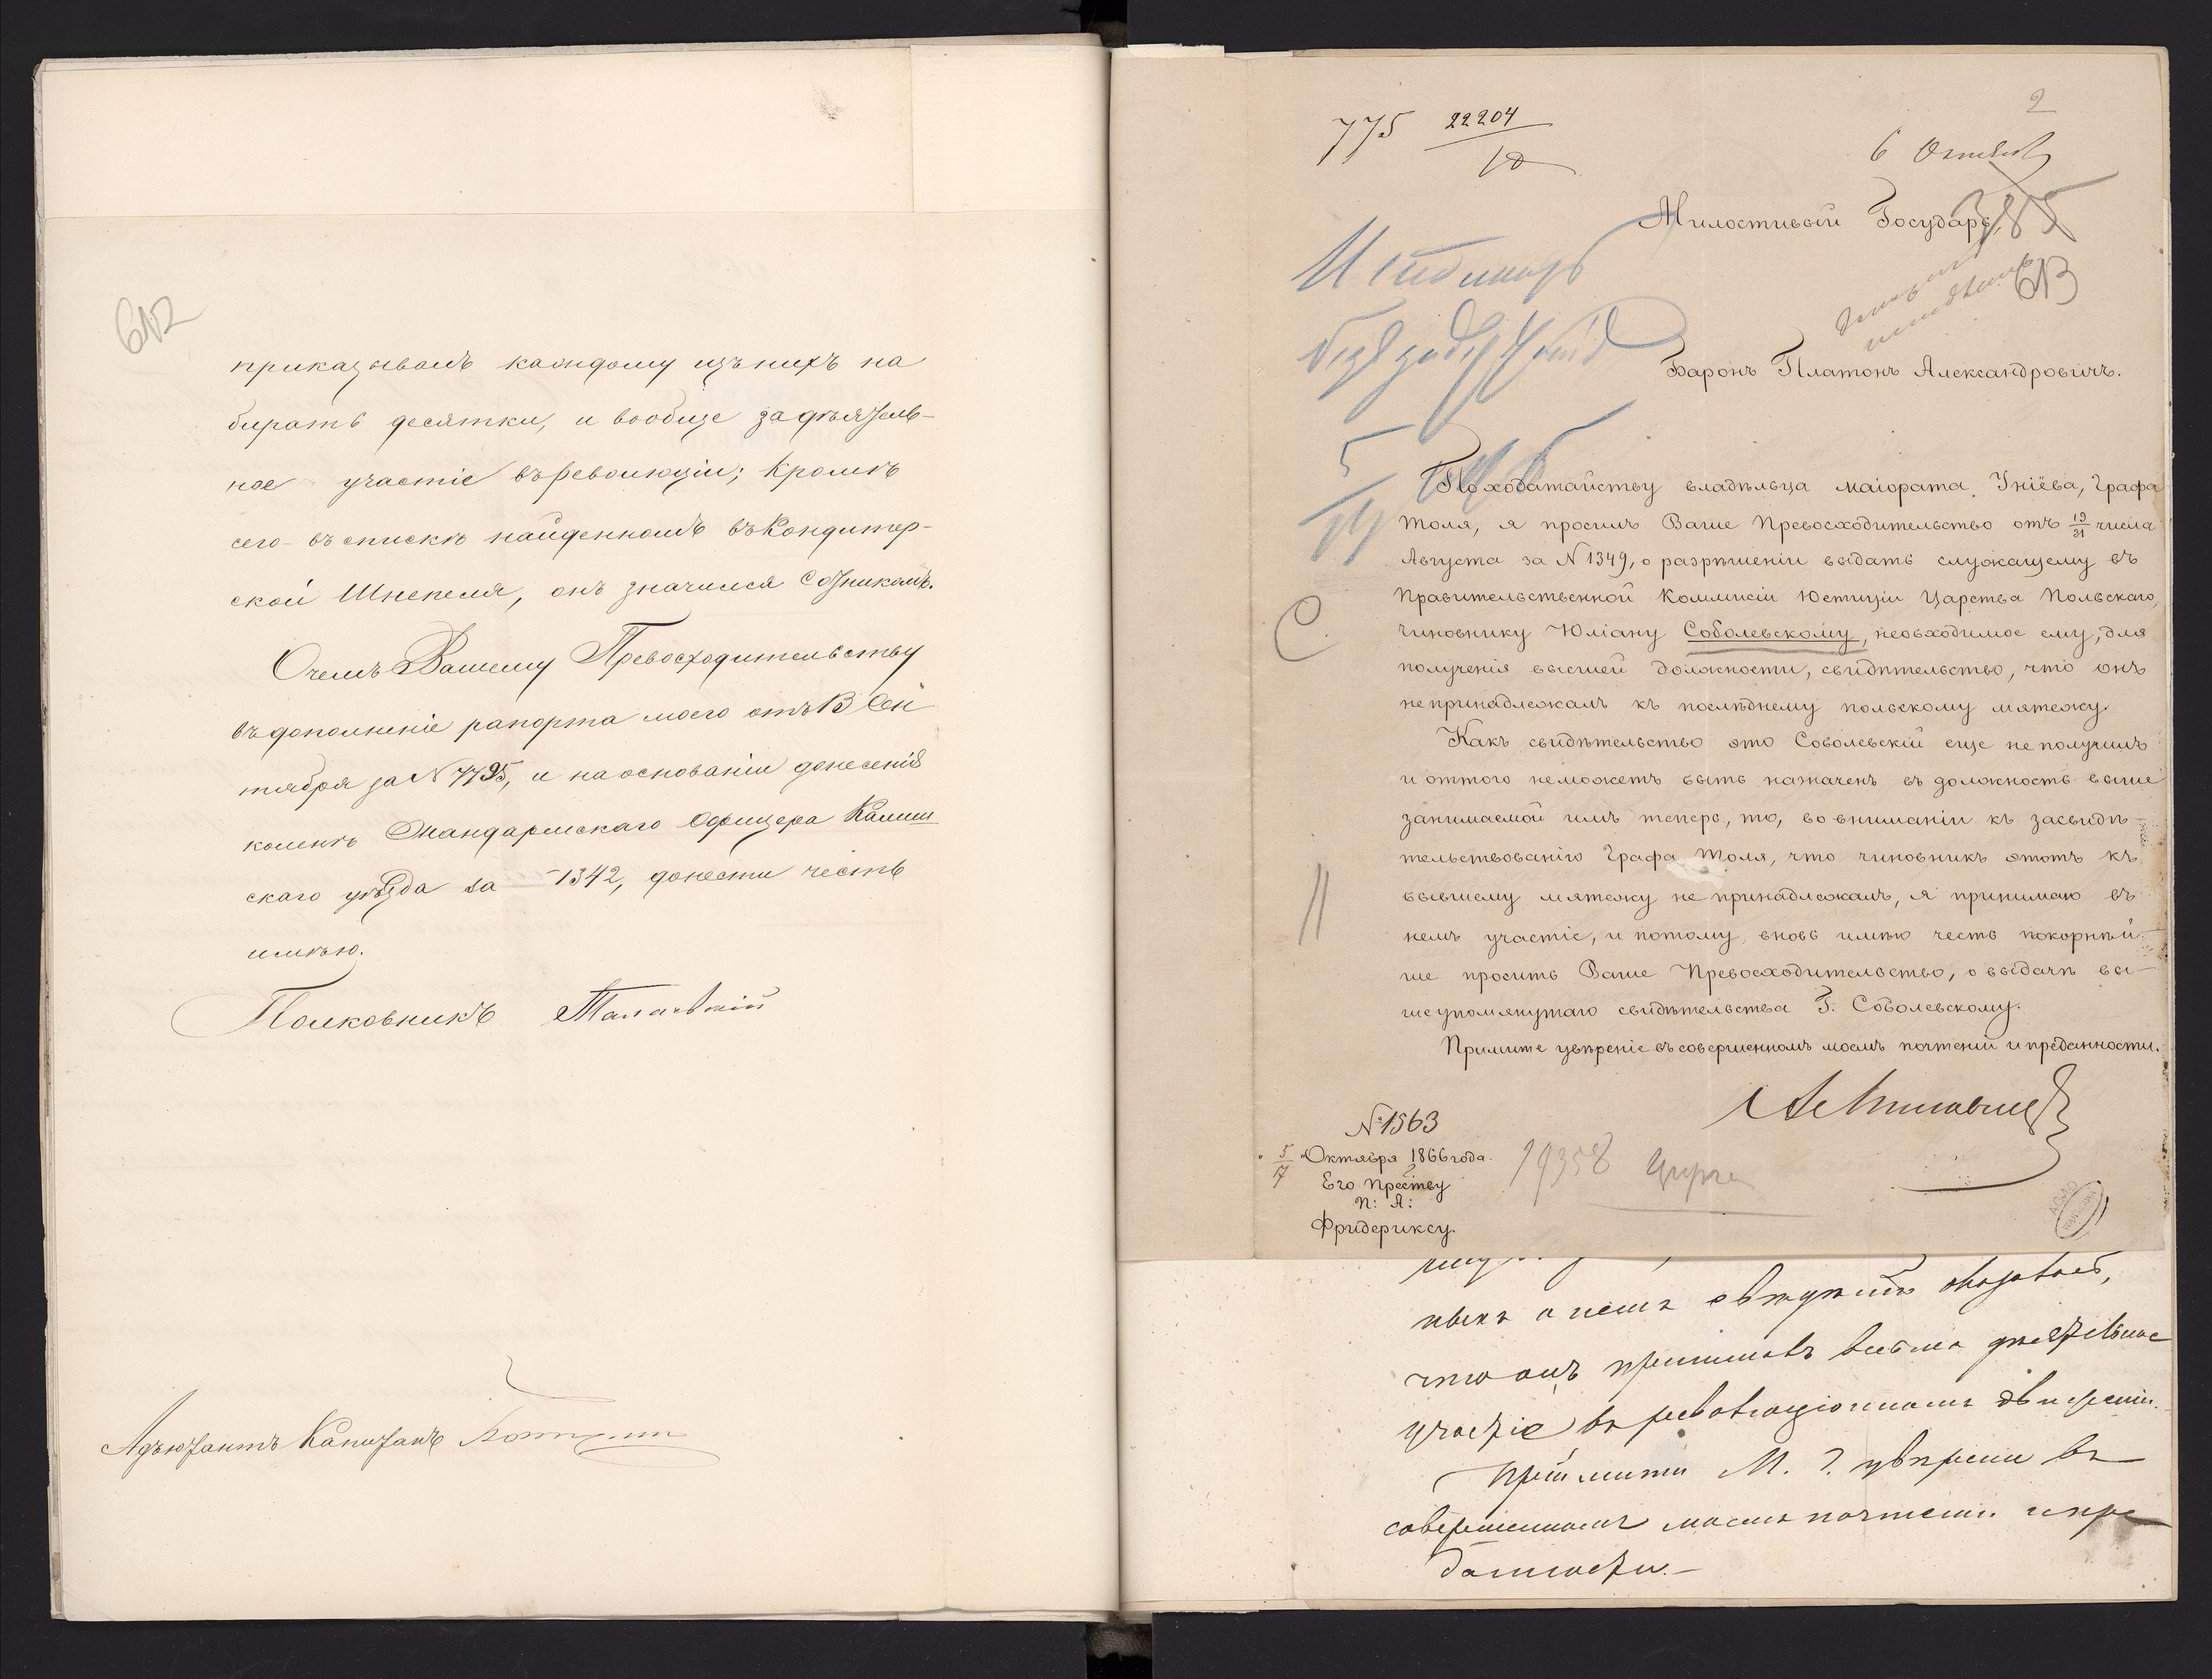 612
приказывалъ каждому изъ нихъ на
бирать десятки, и вообще за дѣятель-
ное участіе въ революціи; кромѣ
сего въ спискѣ найденномъ въ Кондитер-
ской Шнепеля, онъ значился Сотникомъ.
О чемъ Вашему Превосходительству
въ дополненіе рапорта моего отъ 13 Сен
тября за № 7795, и на основаніи донесенія
Жандармскаго Офицера Калиш
скаго уѣзда за 1342, донести честь
имѣю.
Полковникъ
Адъютантъ Капитанъ
2
775 22204
10
6 Октяб
Милостивый Государь,
385
613
Баронъ Платонъ Александровичъ.
5
17
По ходатайству владѣльца маіората Уніёва, Графа
Толя, я просилъ Ваше Превосходительство отъ 19/31 числа
Августа за N 1349, о разрѣшеніи выдать служащему въ
Правительственной Коммисіи Юстиціи Царства Польскаго,
чиновнику Юліану Соболевскому, необходимое ему, для
полученія высшей должности, свидѣтельство, что онъ
не принадлежалъ къ послѣднему польскому мятежу.
Какъ свидѣтельство это Соболевскій еще не получилъ
и оттого неможетъ быть назначенъ въ должность выше
занимаемой имъ теперь, то, во вниманіи къ засвидѣ-
тельствованію Графа Толя, что чиновникъ этотъ къ
бывшему мятежу не принадлежалъ, я принимаю въ
немъ участіе, и потому вновь имѣю честь покорнѣй-
ше просить Ваше Превосходительство, о выдачѣ вы-
шеупомянутаго свидѣтельства Г. Соболевскому.
Примите увѣреніе въ совершенномъ моемъ почтеніи и преданности.
№ 1563
5/17 Октября 1866 года.
Его Прев̃ству
П: А:
Фридериксу.
19358
что онъ принималъ весьма дѣятельное
участіе въ революціонномъ движеніи.
Примите М. Г. увѣреніе въ
совершенномъ моемъ почтеніи и пре
данности.-